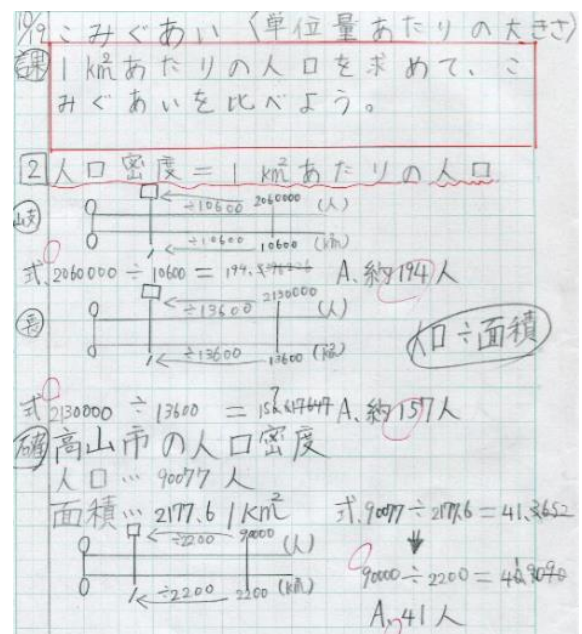 10/19 こみぐあい〈単位量あたりの大きさ〉
課 1km²あたりの人口を求めて、こ
みぐあいを比べよう。
2 人口密度=1km²あたりの人口
岐
0 ÷10600 2060000 (人)
0 1 ÷10600 10600 (km²)
式 2060000÷10600=194. A.約194人
長
0 ÷13600 2130000 (人)
0 1 ÷13600 13600 (km²)
人口÷面積
式 2130000÷13600 = A.約157人
確 高山市の人口密度
人口…90077人
面積…2177.61km²
式.90077÷2177.6=41.3652
0 ÷2200 90000 (人)
0 1 ÷2200 2200 (km²)
90000÷2200=
A.41人